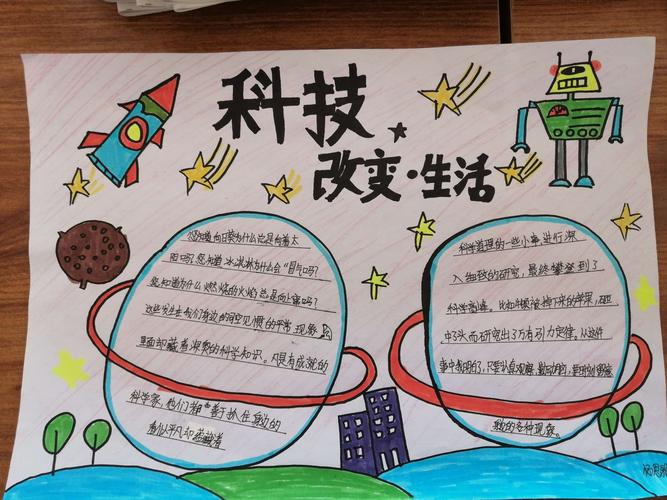 科技
改变·生活
您知道向日葵为什么总是向着太
阳吗？您知道冰淇淋为什么会“冒气吗？
您知道为什么燃烧的火焰总是向上窜吗？
这些发生在我们身边的司空见惯的平常现象
里面却藏着深奥的科学知识。凡是有成就的
科学家，他们都“善于抓住身边的
看似平凡却蕴藏着
科学道理的一些小事进行深
入细致的研究，最终攀登到了
科学高峰。比如牛顿被掉下来的苹果，砸
中头而研究出了万有引力定律。从这件
事中表明了，只要认真观察，勤动脑，
身边的各种现象。